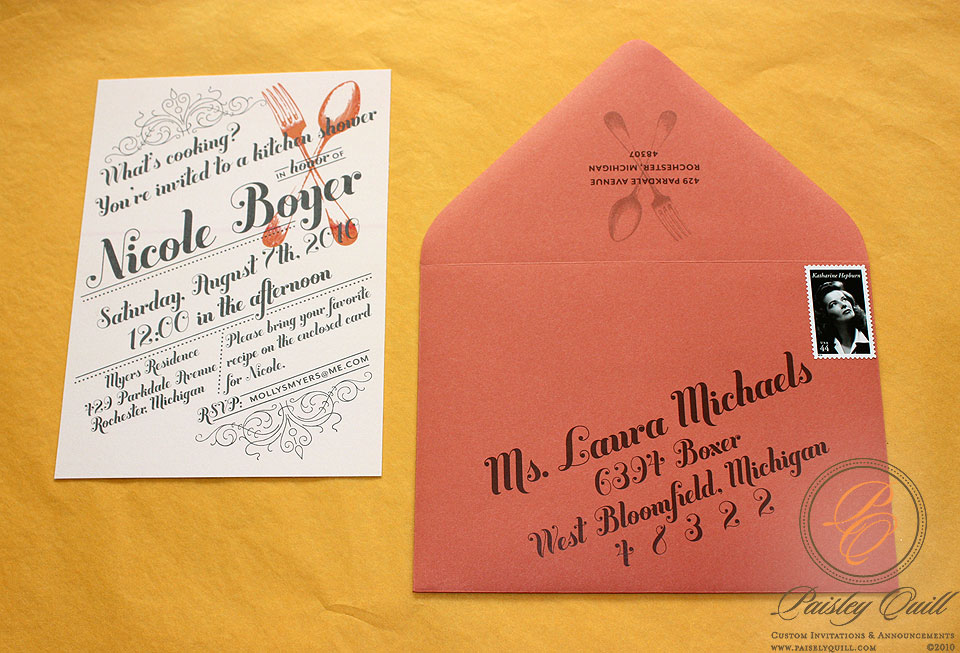 What's cooking?
You're invited to a kitchen shower
IN honor OF
Nicole Boyer
Saturday, August 7th, 2010
12:00 in the afternoon
Myers Residence
429 Parkdale Avenue
Rochester, Michigan
Please bring your favorite
recipe on the enclosed card
for Nicole.
RSVP: MOLLYSMYERS@ME.COM
429 PARKDALE AVENUE
ROCHESTER, MICHIGAN
48307
Katharine Hepburn
USA
44
Ms. Laura Michaels
6394 Boxer
West Bloomfield, Michigan
48322
PQ
Paisley Quill
CUSTOM INVITATIONS & ANNOUNCEMENTS
WWW.PAISELYQUILL.COM ©2010